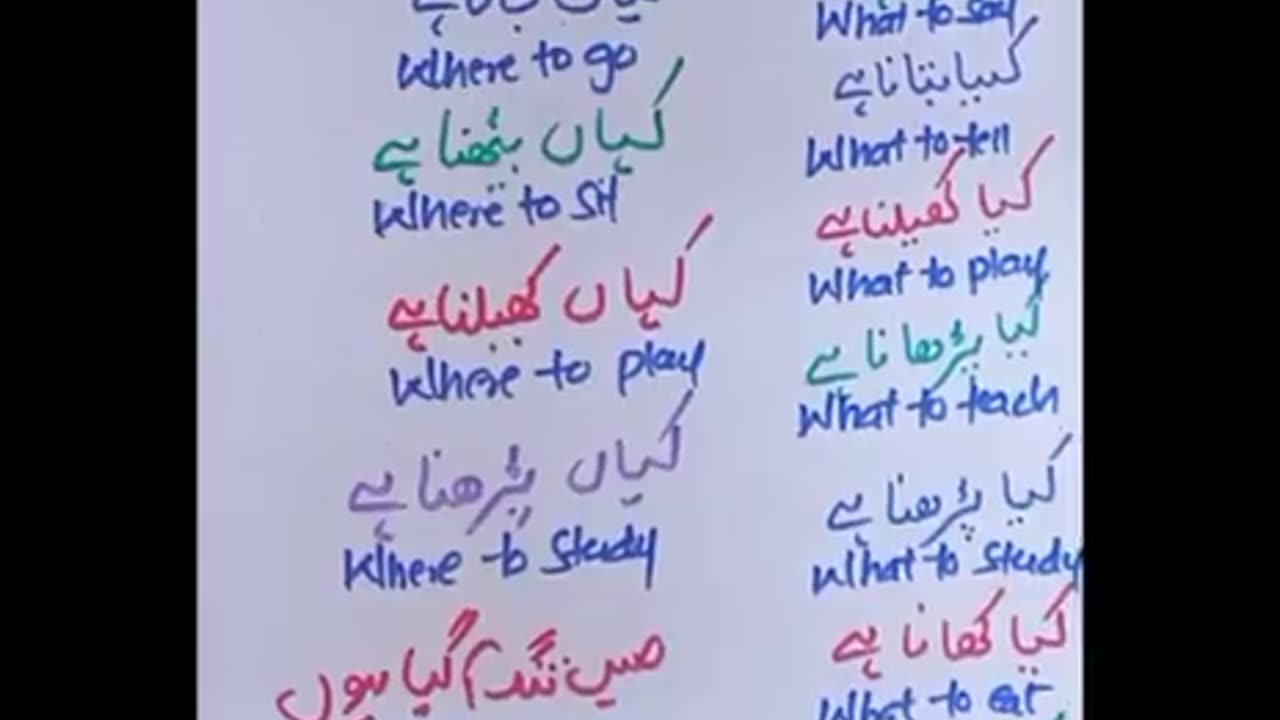 Where to go
کہاں بیٹھنا ہے
Where to Sit
کہاں کھیلنا ہے
Where to play
کہاں پڑھنا ہے
Where to Study
گیا ہوں
What to say
کیا بتانا ہے
What to tell
کیا کھیلنا ہے
What to play
کیا پڑھانا ہے
What to teach
کیا پڑھنا ہے
What to Study
کیا کھانا ہے
What to eat